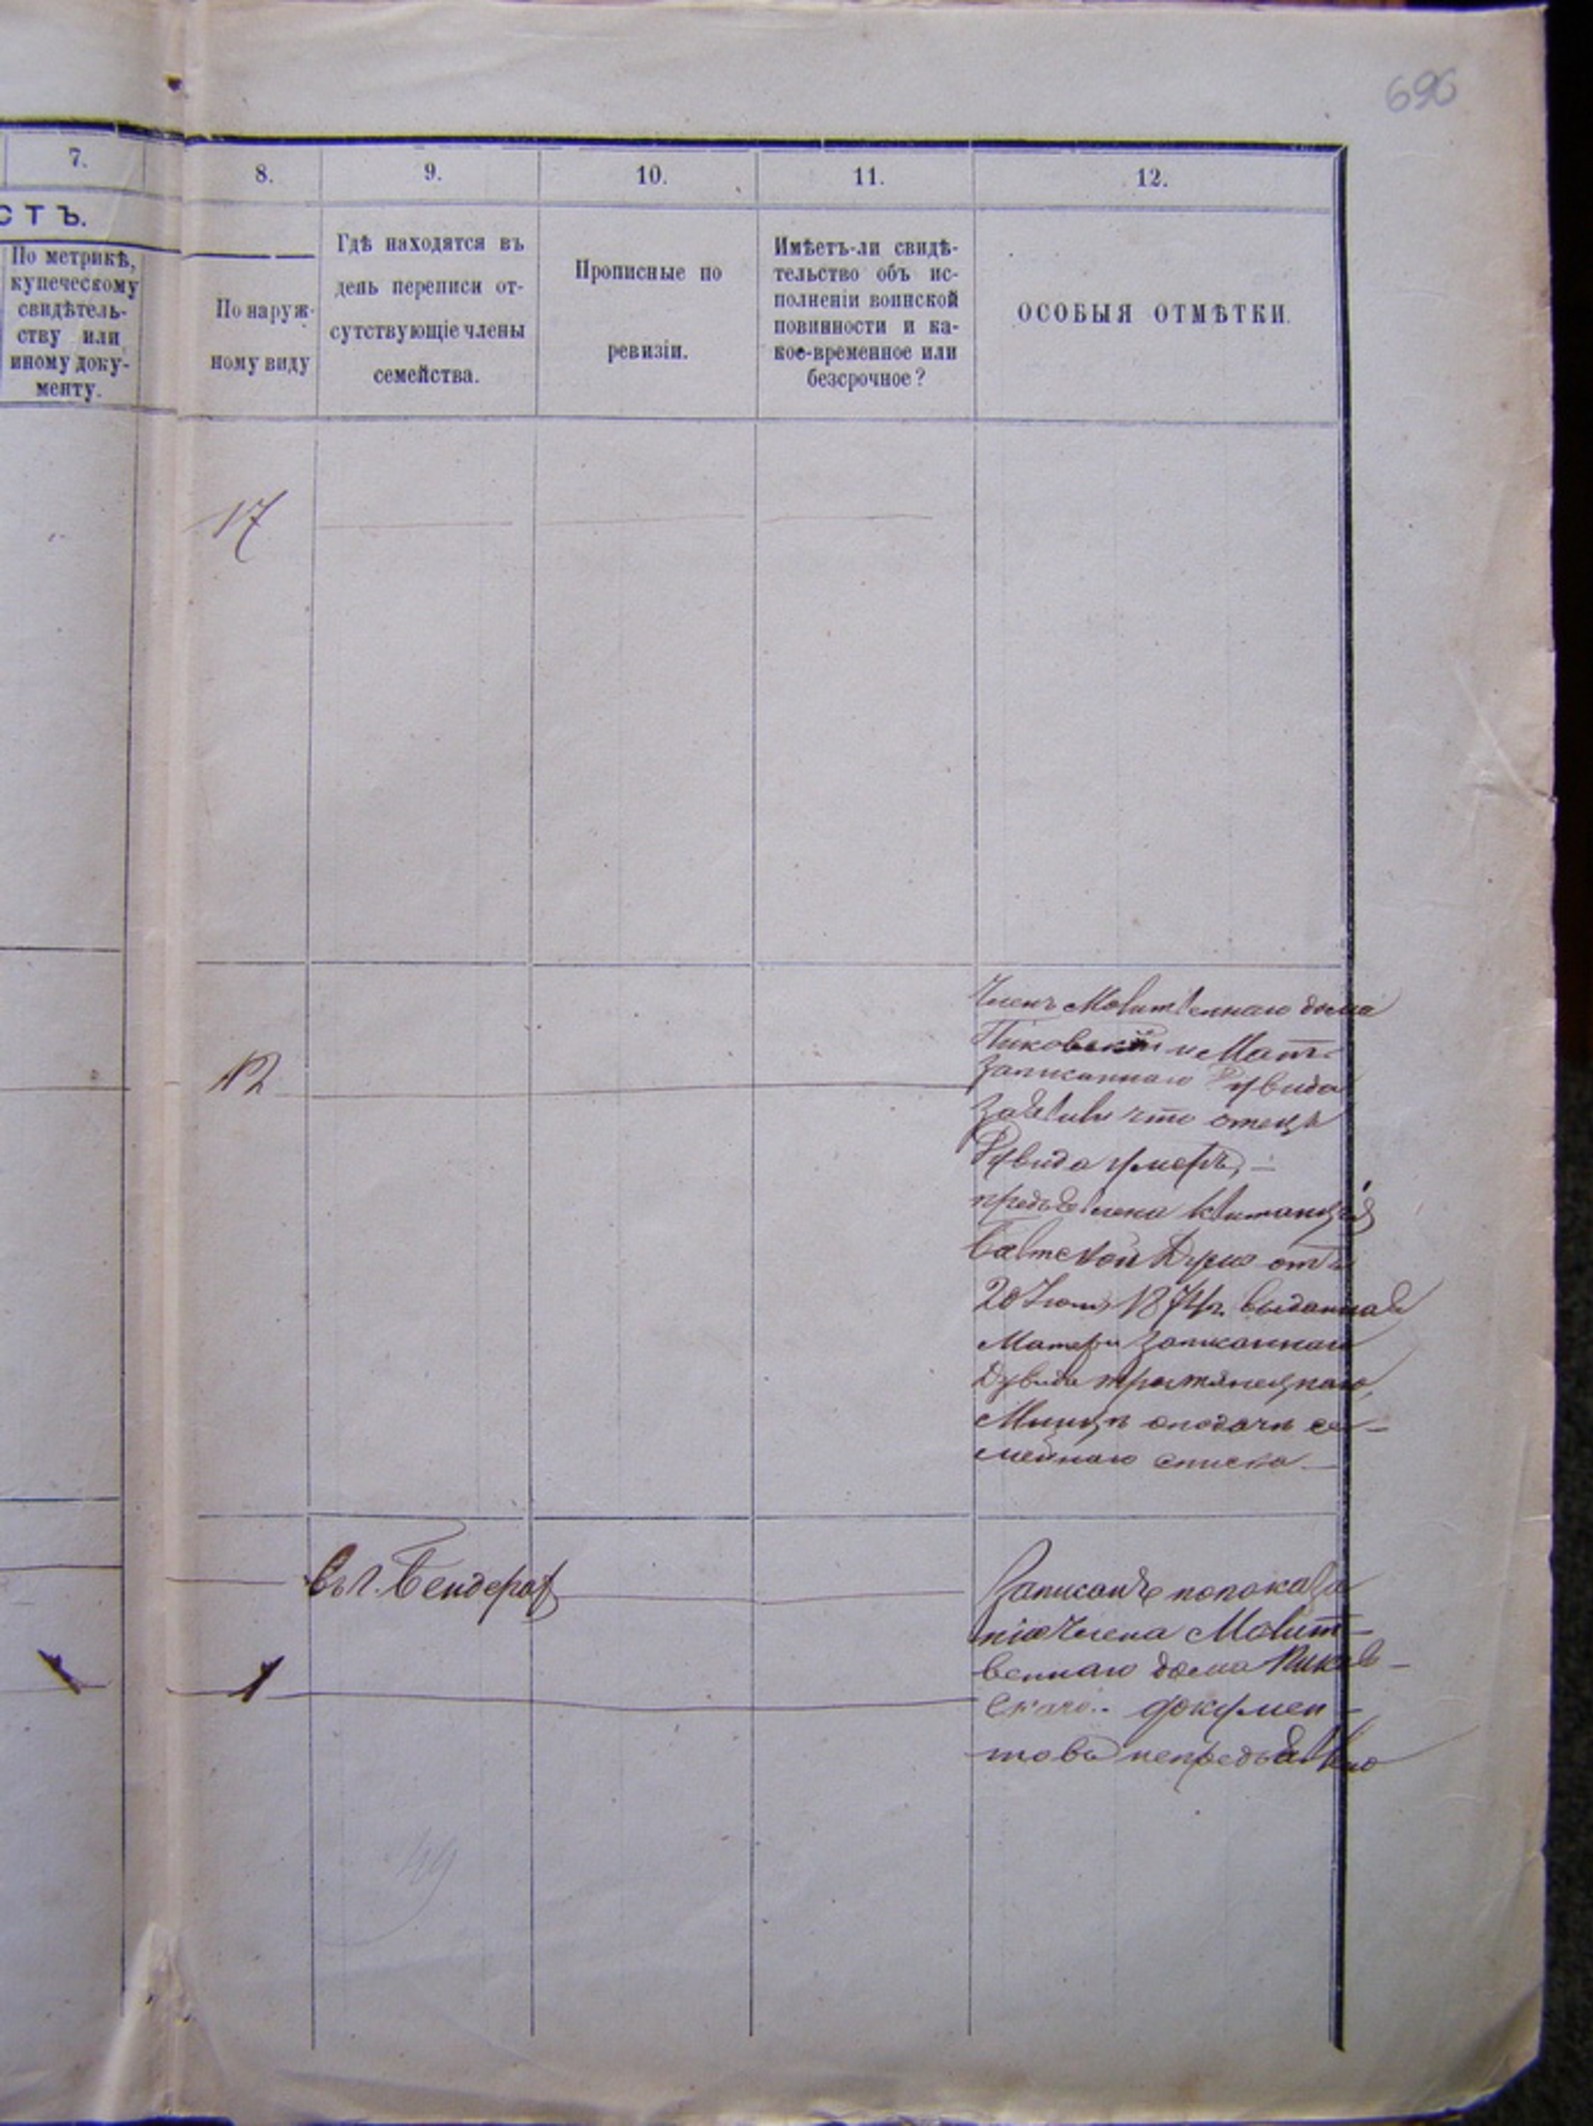 696
7.
8.
9.
10.
11.
12.
СТЪ.
По метрикѣ,
купеческому
свидѣтель-
ству или
иному доку-
менту.
По наруж-
ному виду
Гдѣ находятся въ
день переписи от-
сутствующіе члены
семейства.
Прописные по
ревизіи.
Имѣетъ-ли свидѣ-
тельство объ ис-
полненіи воинской
повинности и ка-
кое-временное или
безсрочное?
ОСОБЫЯ ОТМѢТКИ.
17
Членъ Молитвеннаго дома
Пиковскій и Мать
записаннаго
что отецъ
умеръ, —
предъявлена квитанція
Балтской Думы отъ
20 1874 г. выданная
Матери записаннаго
о подачѣ се-
мейнаго списка. —
12
въ г. Бендерах
Записанъ по показа
нію Члена Молит-
веннаго дома Пиков-
скаго.. докумен-
товъ не предъявлено
1
1
49